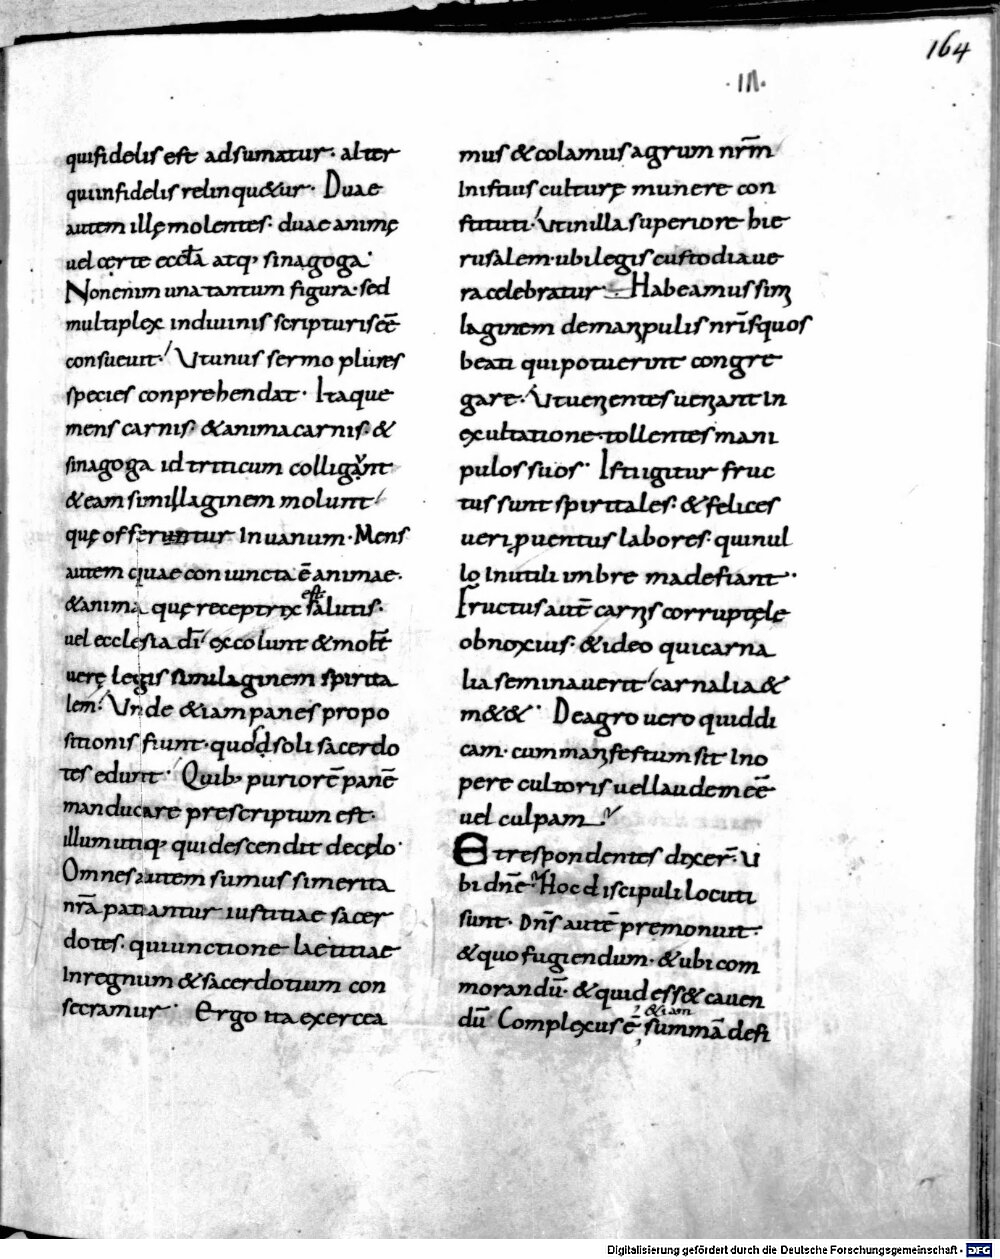 164
·III·
quifidelis est adsumatur· alter
quiinfidelis relinqu&ur· Duae
autem illę molentes· duae animę
uel certe eccłā atq; sinagoga·
Nonenim una tantum figura· sed
multiplex indiuinis scripturis eē
consueuit· Vt unus sermo plures
species conprehendat· Itaque
mens carnis· & anima carnis· &
sinagoga id triticum colligant
& eam similaginem molunt
quę offeruntur inuanum· Mens
autem quae coniuncta ē animae·
& anima quę receptrix est salutis·
uel ecclesia dī excolunt & molūt
uerę legis similaginem spirita
lem· Vnde &iam panes propo
sitionis fiunt· quod soli sacerdo
tes edunt· Quib; puriorē panē
manducare prescriptum est·
illum utiq; qui descendit decęlo·
Omnes autem sumus si merita
nrā patiantur iustitiae sacer
dotes· qui unctione laetitiae
Inregnum & sacerdotium con
secramur· Ergo ita exercea
mus & colamus agrum nrm̄
Inistius culturę munere con
stituti· Vt inilla superiore hie
rusalem· ubi legis custodia ue
ra celebratur· Habeamus sim
laginem demanipulis nrīs quos
beati qui potuerint congre
gare· Vt uenientes ueniant in
exultatione· tollentes mani
pulos suos· Isti igitur fruc
tus sunt spiritales· & felices
ueri prouentus labores· qui nul
lo inutili imbre madefiant·
Fructus autē carnis corruptęle
obnoxius· & ideo qui carna
lia seminauerit carnalia &
m&&· De agro uero quid di
cam· cum manifestum sit Ino
pere cultoris uel laudem eē
uel culpam·
Et respondentes dixer̄· V
bi dn̄e· Hoc discipuli locuti
sunt· Dn̄s autē premonuit·
& quo fugiendum· & ubi com
morandū· & quid ess& cauen
dū· Complexus ē &iam summā defi
Digitalisierung gefördert durch die Deutsche Forschungsgemeinschaft - DFG